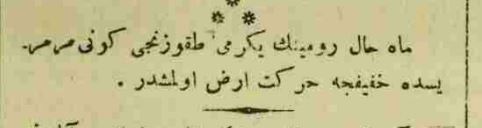 ماه حال رومینك یكرمی طقوزنجی كونی مرمر-
یسده خفیفجه حركت ارض اولمشدر .